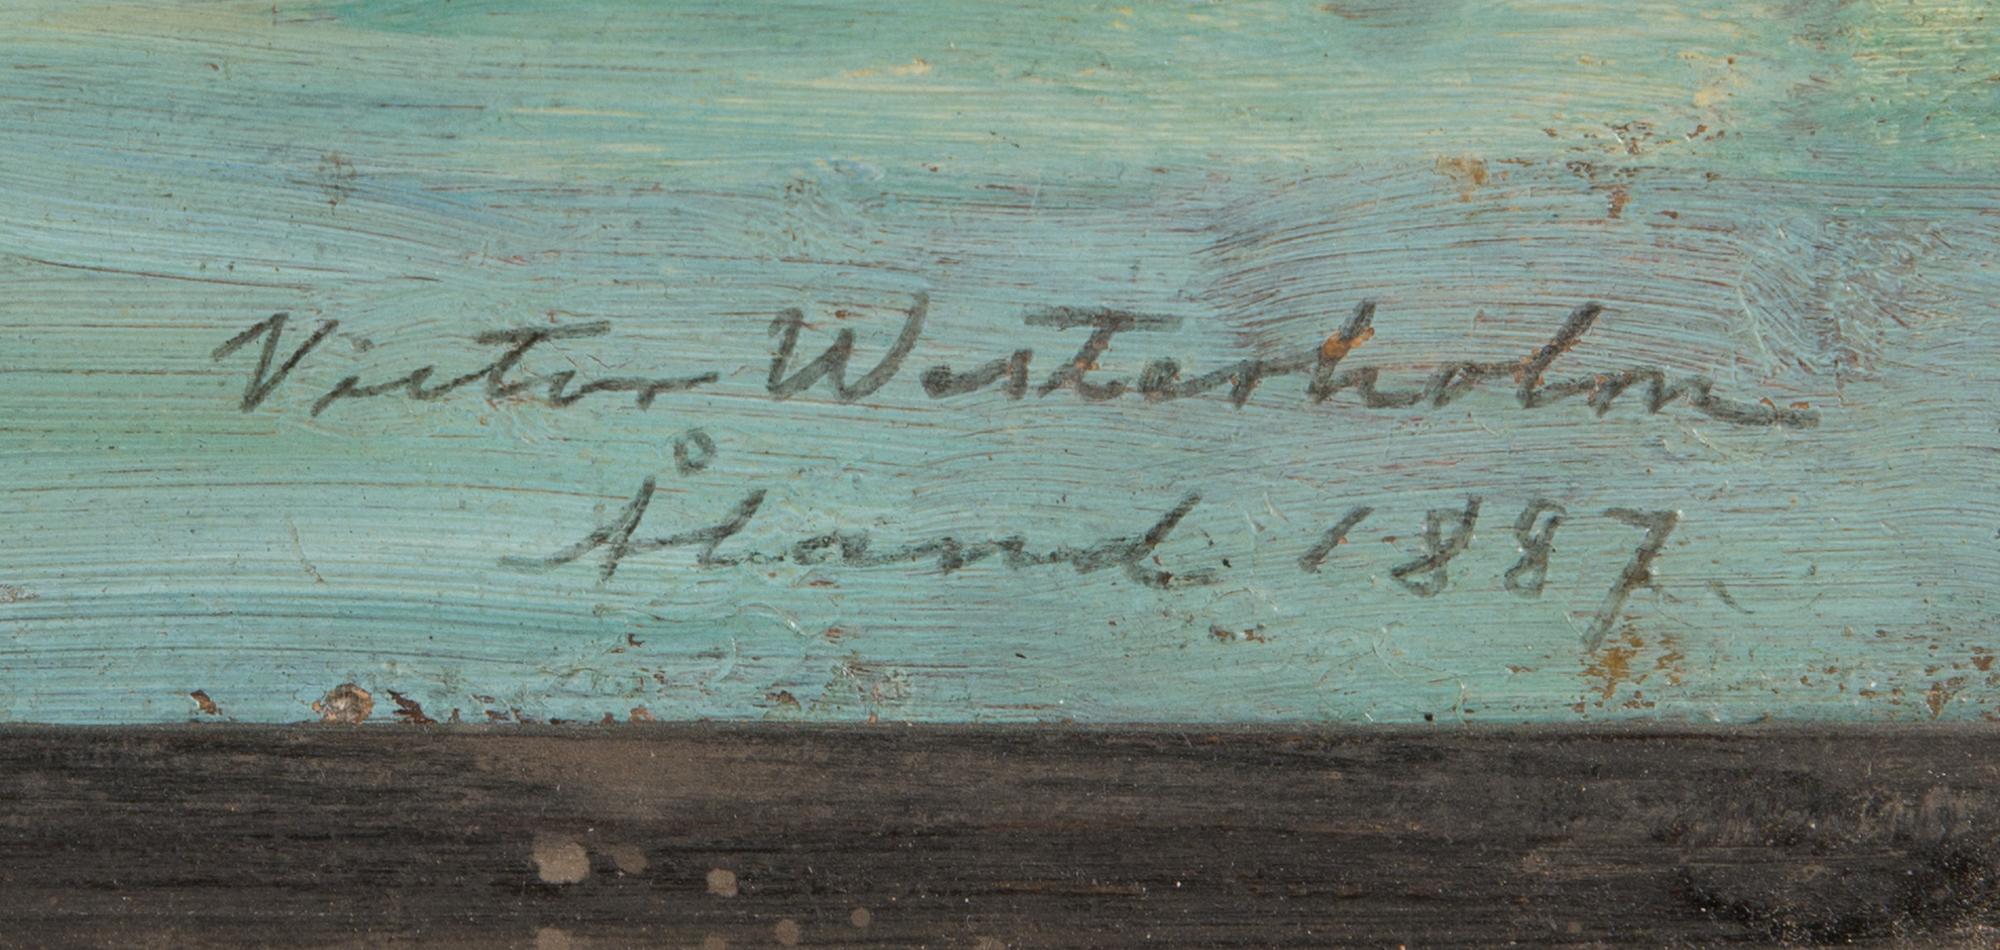 Victor Westerholm
Åland. 1887.